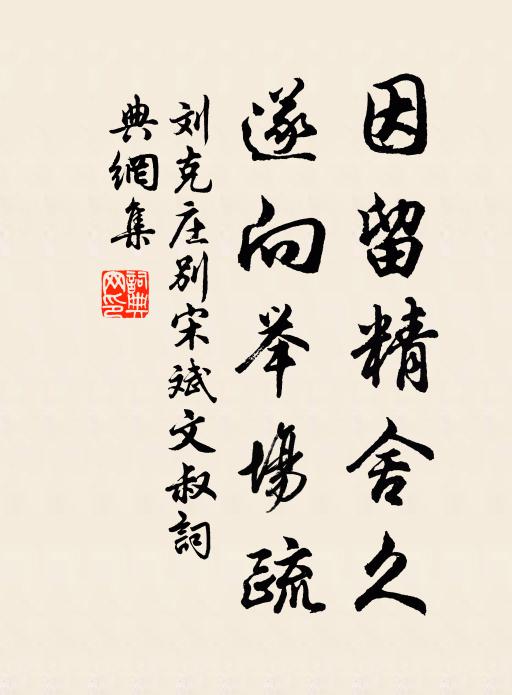 因留精舍久
遂向举場疏
刘克庄别宋斌文叔詞
典網集
詞典網印